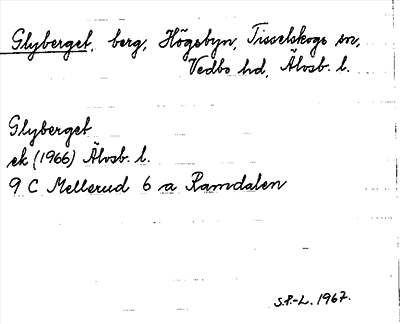 Glyberget, berg, Högsbyn, Tisselskogs sn,
Vedbo hd, Älvsb. l.
Glyberget
ek (1966) Älvsb. l.
9 C Mellerud 6 a Ramdalen
S.P.-L. 1967.